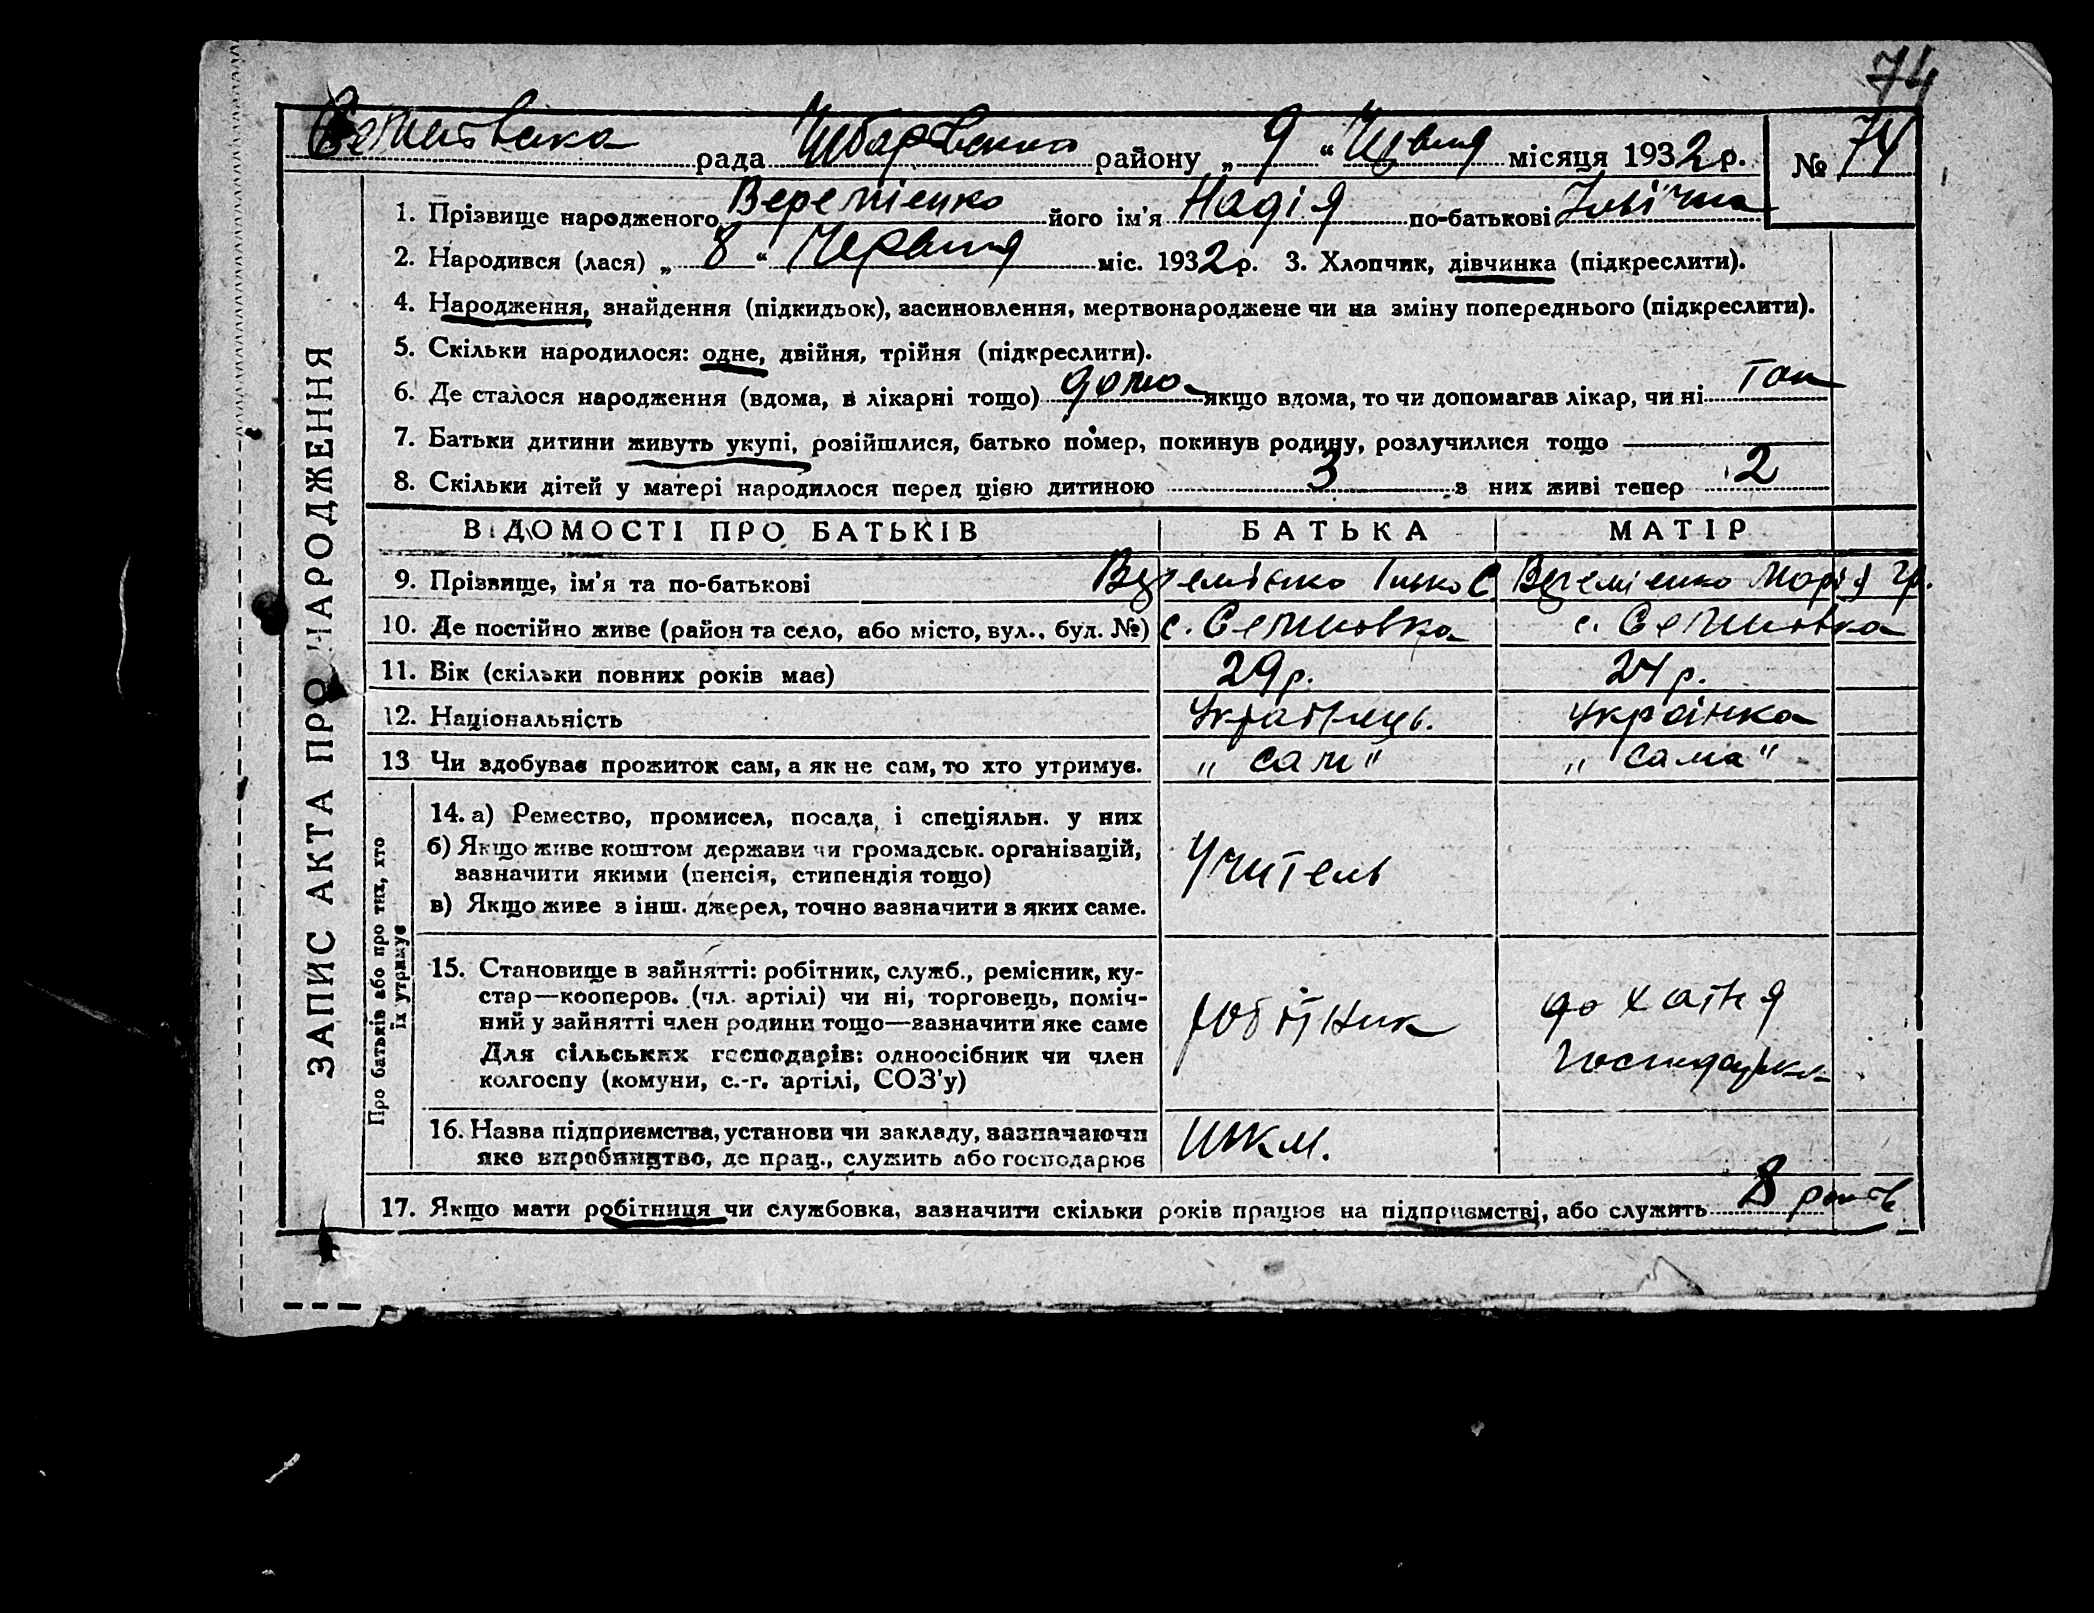 74
рада района „ 9 “ місяця 1932 р. № 74
1. Прізвище народженого Веремієнко його ім'я Надія по-батькові
2. Народився (лася) „ 8 “ Червня міс. 1932 р. 3. Хлопчик, дівчинка (підкреслити).
4. Народження, знайдення (підкидьок), засиновлення, мертвонароджене чи на зміну попереднього (підкреслити).
5. Скільки народилося: одне, двійня, трійня (підкреслити).
6. Де сталося народження (вдома, в лікарні тощо) дома якщо вдома, то чи допомагав лікар, чи ні Так
7. Батьки дитини живуть укупі, розійшлися, батько помер, покинув родину, розлучилися тощо
8. Скільки дітей у матері народилося перед цією дитиною 3 з них живі тепер 2
ВІДОМОСТІ ПРО БАТЬКІВ БАТЬКА МАТІР
9. Прізвище, ім'я та по-батькові Веремієнко С. Веремієнко Марія Гр.
10. Де постійно живе (район та село, або місто, вул., буд. №) с. Семиновка с. Семиновка
11. Вік (скільки повних років має) 29 р. 24 р.
12. Національність Українець. Українка
13 Чи здобуває прожиток сам, а як не сам, то хто утримує. „ сам “ „ сама “
14. а) Ремество, промисел, посада і спеціяльн. у них
б) Якщо живе коштом держави чи громадськ. організацій,
зазначити якими (пенсія, стипендія тощо)
Учитель
в) Якщо живе з інш. джерел, точно зазначити з яких саме.
15. Становище в зайнятті: робітник, служб., ремісник, ку-
стар—кооперов. (чл. артілі) чи ні, торговець, поміч-
ний у зайнятті член родини тощо—зазначити яке саме
Для сільських господарів: одноосібник чи член
колгоспу (комуни, с.-г. артілі, СОЗ'у)
робітник
до хатня
господарка
16. Назва підприємства, установи чи закладу, зазначаючи
яке виробництво, де прац., служить або господарює
ШКМ.
17. Якщо мати робітниця чи службовка, зазначити скільки років працює на підприємстві, або служить 8 років
ЗАПИС АКТА ПРО НАРОДЖЕННЯ
Про батьків або про тих, хто
їх утримує